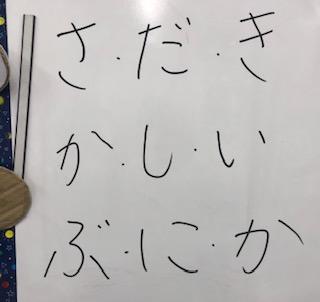 さ・だ・き
か・し・い
ぶ・に・か